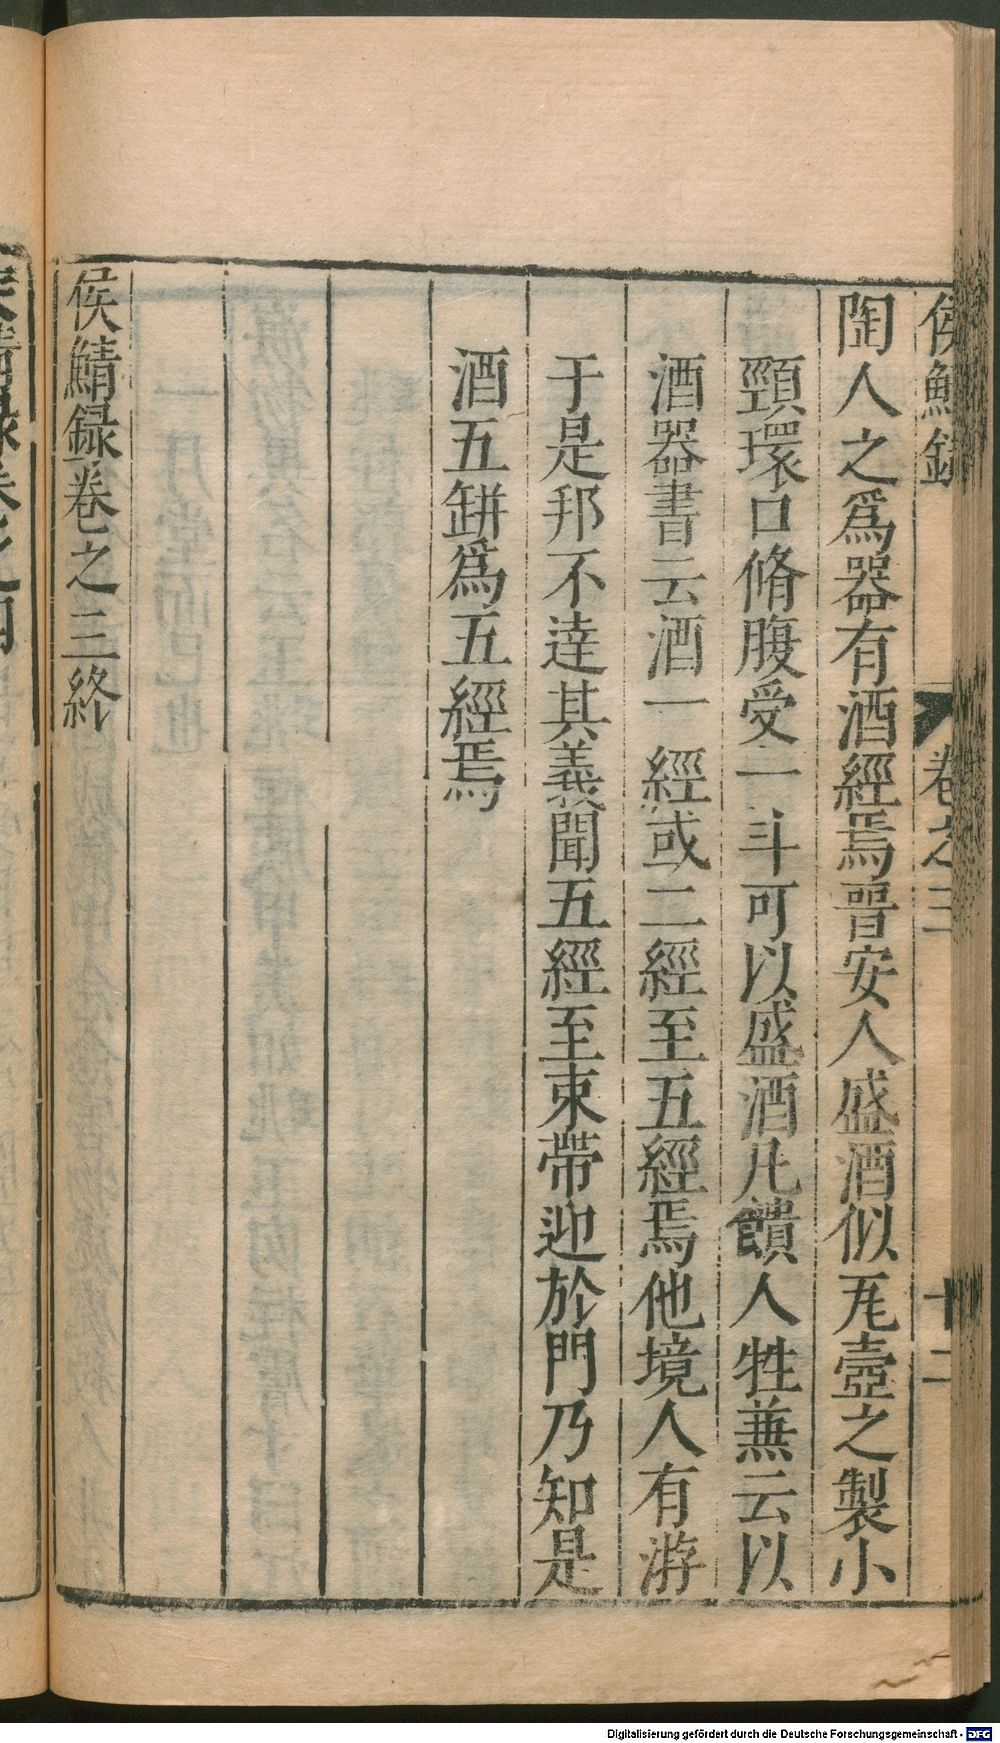 侯鯖錄
卷之三
十二
陶人之爲器有酒經焉晉安人盛酒似瓦壺之製小
頸環口脩腹受一斗可以盛酒凡饋人牲兼云以
酒器書云酒一經或二經至五經焉他境人有游
于是邦不達其義聞五經至束帶迎於門乃知是
酒五缾爲五經焉
侯鯖録卷之三終
Digitalisierung gefördert durch die Deutsche Forschungsgemeinschaft - DFG